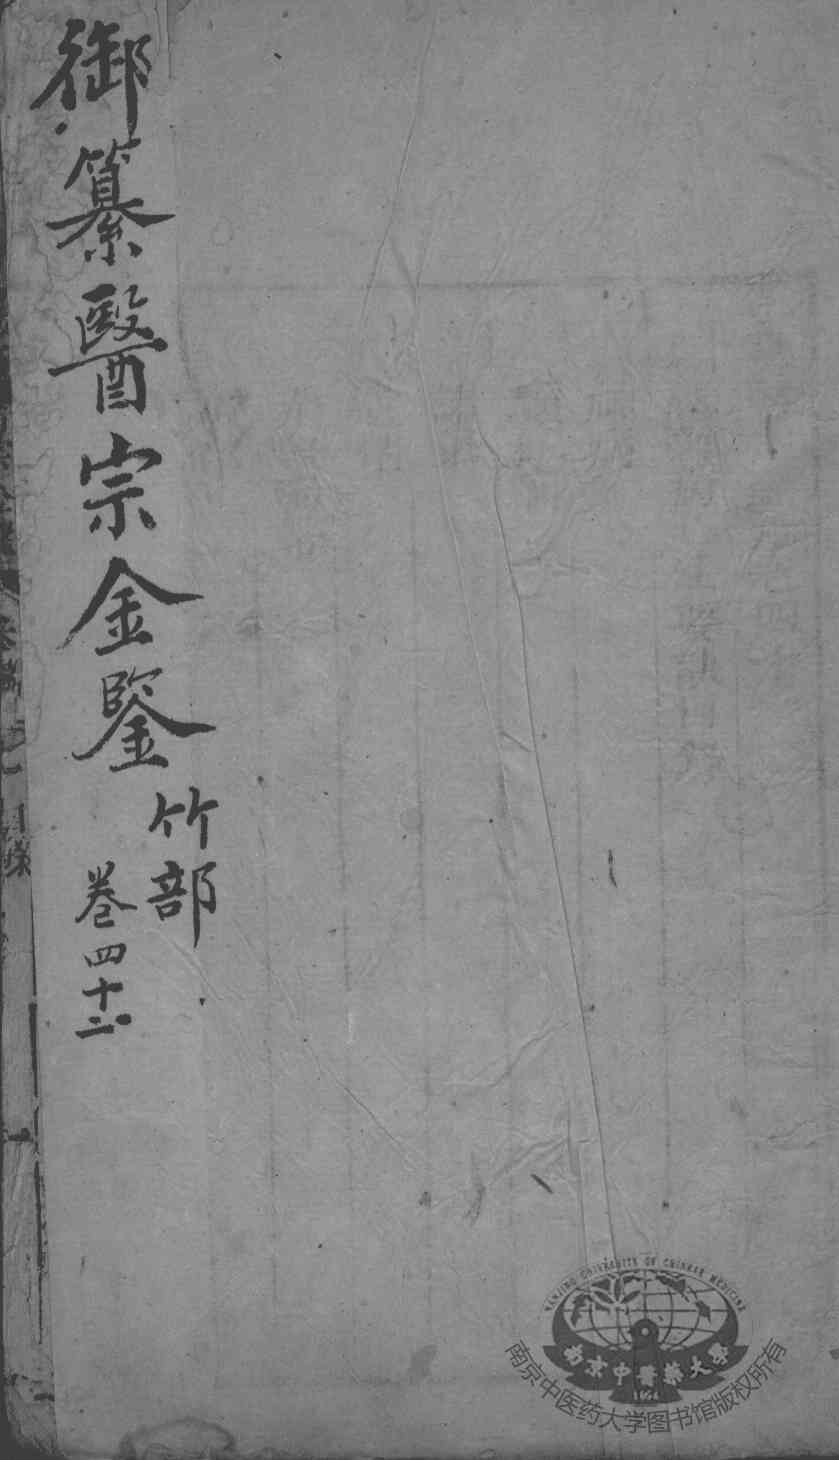 御纂醫宗金鑒
竹部
卷四十二
目錄
NANJING UNIVERSITY OF CHINESE MEDICINE
南京中醫藥大學
1954
南京中医药大学图书馆版权所有